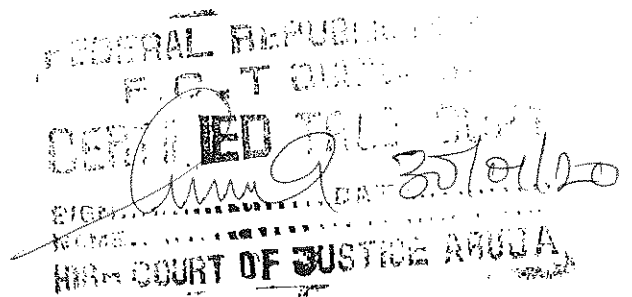 FEDERAL REPUBLIC
F.C.T
CERTIFIED TRUE COPY
SIGN.................DATE 30/01/20
NAME.......................
HIGH COURT OF JUSTICE ABUJA